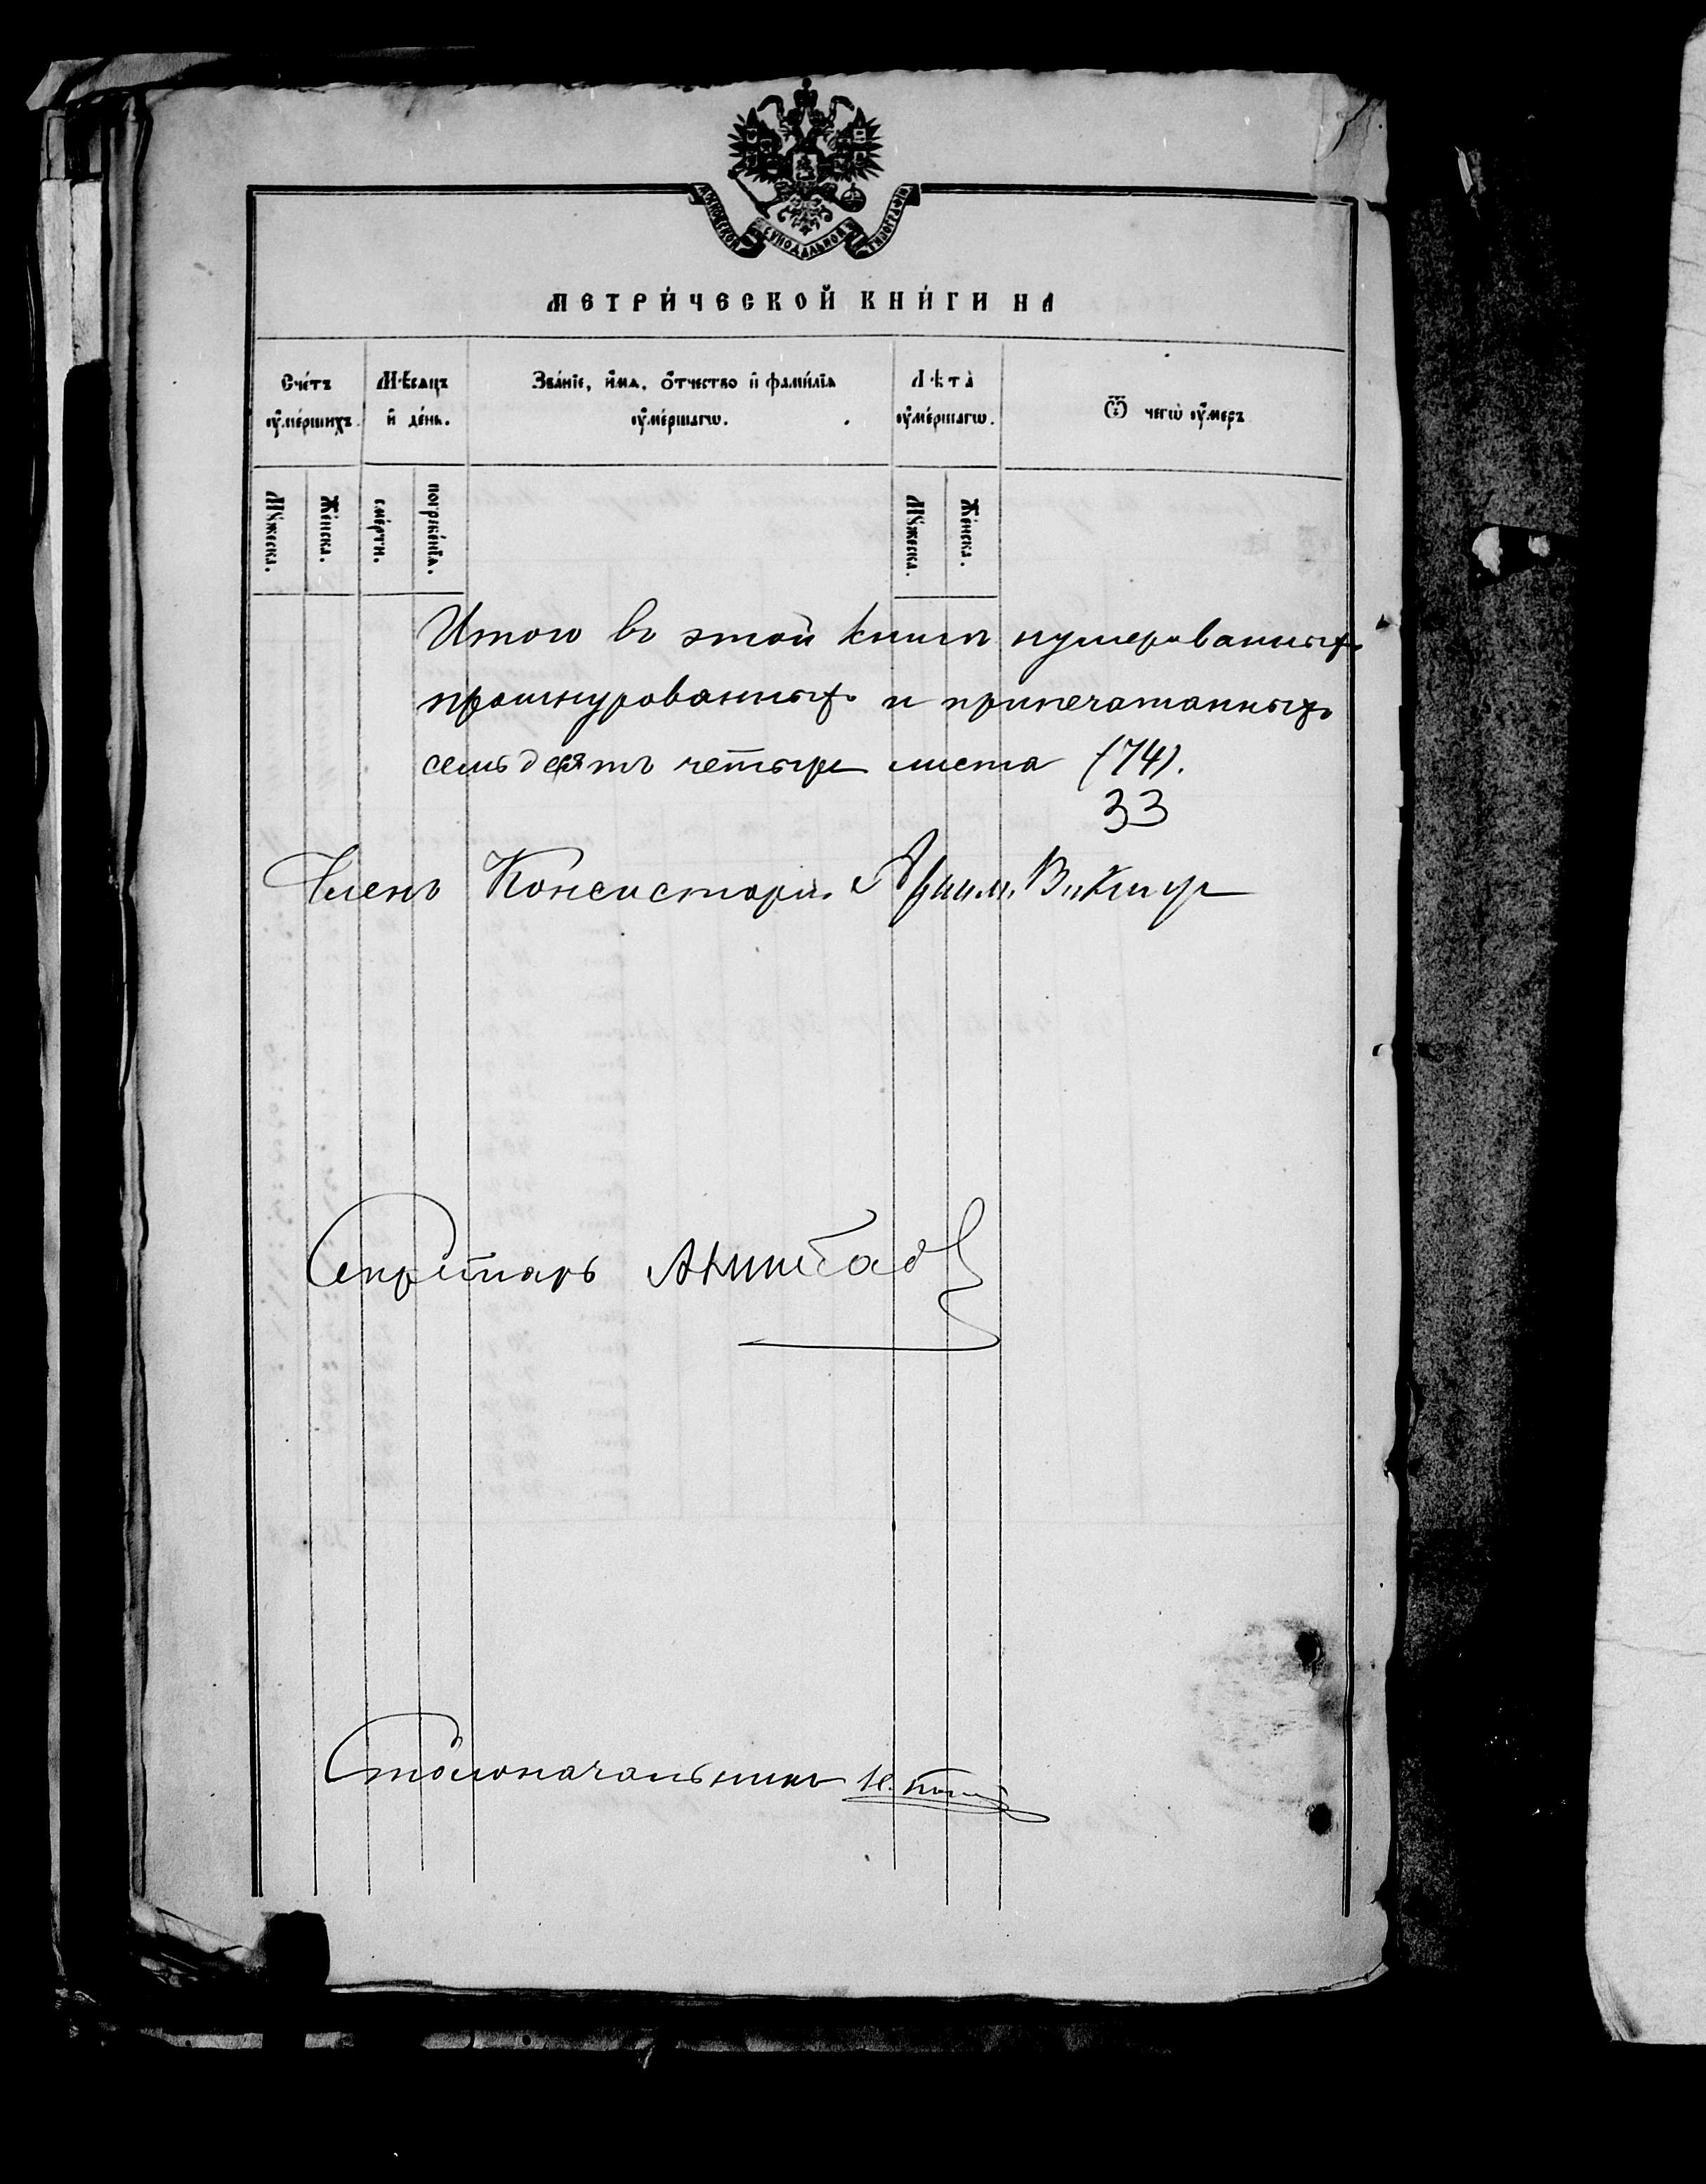 МОСКОВСКОЙ СѴНОДАЛЬНОЙ ТИПОГРАФІИ
МЕТРИ́ЧЕСКОЙ КНИ́ГИ НА
Сче́тъ ᲂу҆ме́ршихъ.
Мѣ́сѧцъ и҆ де́нь.
Зва́нїе, и҆́мѧ, ѻ҆́тчество и҆ фамі́лїа ᲂу҆ме́ршагѡ.
Лѣта̀ ᲂу҆ме́ршагѡ.
Ѿ чегѡ̀ ᲂу҆́меръ
Мꙋ́жеска.
Же́нска.
сме́рти.
погребе́нїѧ.
Мꙋ́жеска.
Же́нска.
Итого въ этой книгѣ нумерованныхъ
прошнурованныхъ и припечатанныхъ
семьдесятъ четыре листа (74).
33
Членъ Консисторіи Архим. Викторъ
Секретарь
Столоначальникъ Н.